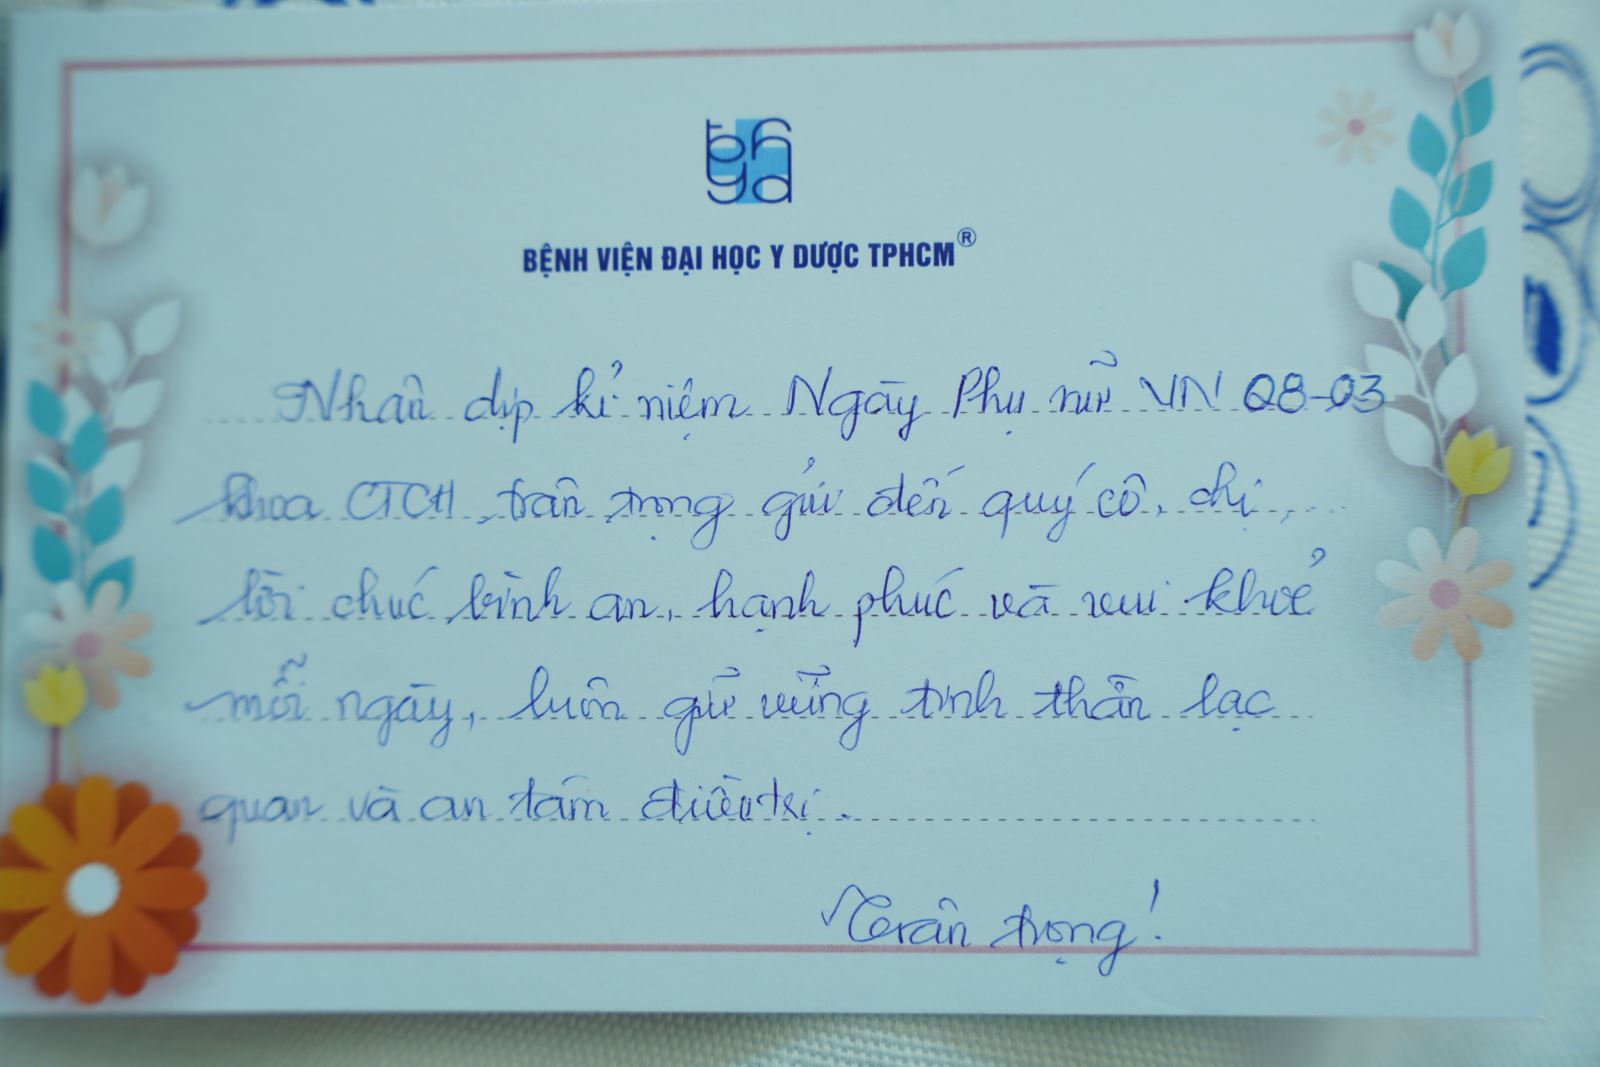 bh
yd
BỆNH VIỆN ĐẠI HỌC Y DƯỢC TPHCM®
Nhân dịp kỉ niệm Ngày Phụ nữ VN 08-03
khoa CTCH trân trọng gửi đến quý cô, chị,
lời chúc bình an, hạnh phúc và vui khoẻ
mỗi ngày, luôn giữ vững tinh thần lạc
quan và an tâm điều trị.
Trân trọng!